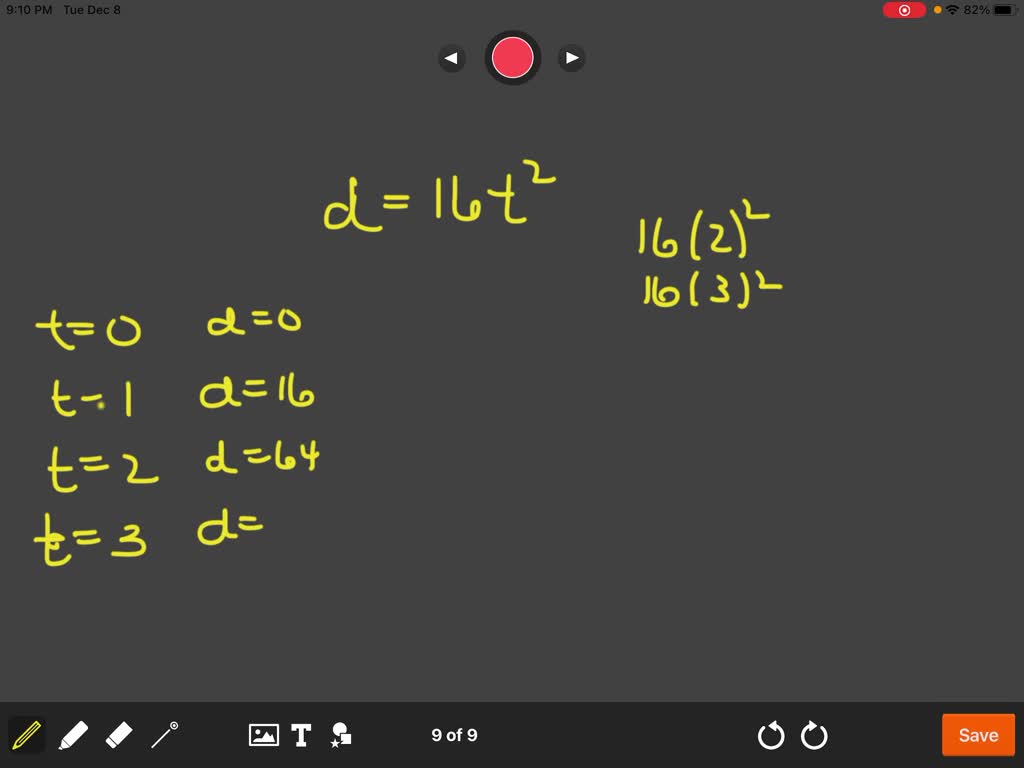 9:10 PM Tue Dec 8
82%
d = 16t²
16(2)²
16(3)²
t=0 d=0
t-1 d=16
t=2 d=64
t=3 d=
T
9 of 9
Save